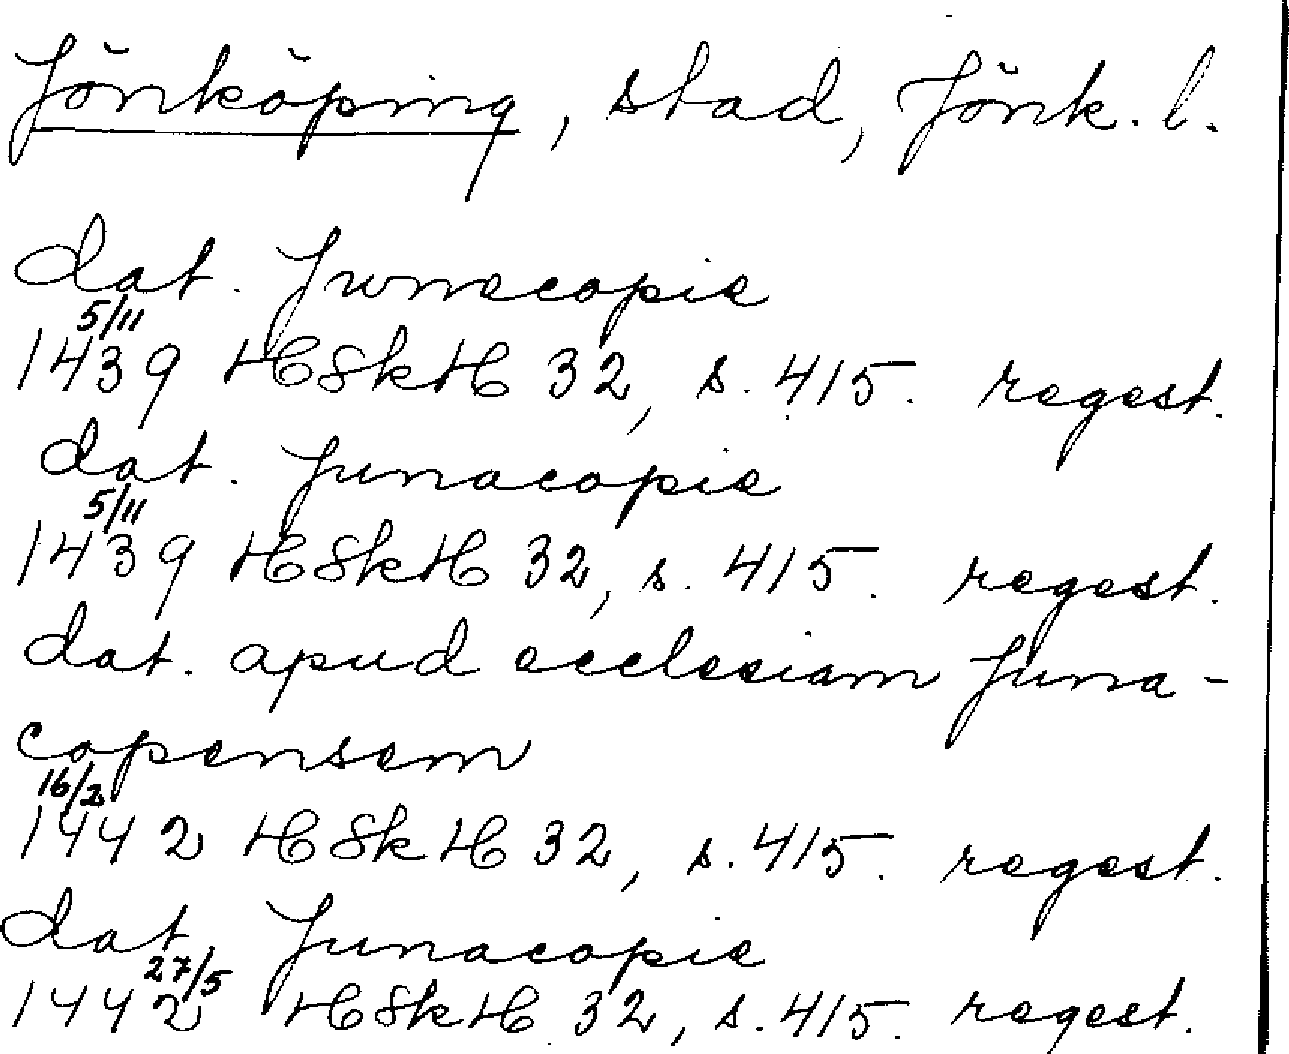 Jönköping, stad, Jönk. l.
dat. Junecopie
5/11
1439 HSkH 32, s. 415. regest.
dat. Junacopie
5/11
1439 HSkH 32, s. 415. regest.
dat. apud ecclesiam Juna-
copensem
16/2
1442 HSkH 32, s. 415. regest.
dat. Junacopie
27/5
1442 HSkH 32, s. 415. regest.